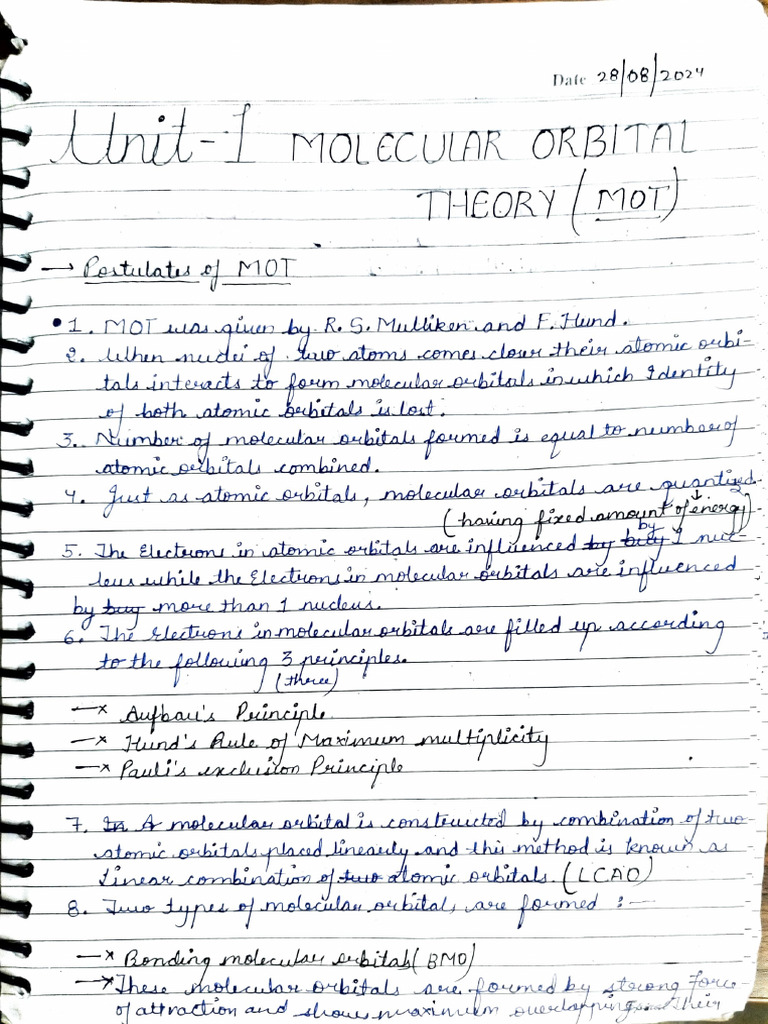 Date 28/08/2024
Unit-1 MOLECULAR ORBITAL
THEORY (MOT)
→ Postulates of MOT
• 1. MOT was given by R. S. Mulliken and F. Hund.
2. When nuclei of two atoms comes closer their atomic orbi-
tals interacts to form molecular orbitals in which Identity
of both atomic orbitals is lost.
3. Number of molecular orbitals formed is equal to number of
atomic orbitals combined.
4. Just as atomic orbitals, molecular orbitals are quantized.
(having fixed amount of energy)
5. The Electrons in atomic orbitals are influenced by 1 nuc-
leus while the Electrons in molecular orbitals are influenced
by more than 1 nucleus.
6. The Electrons in molecular orbitals are filled up according
to the following 3 principles.
(three)
—× Aufbau's Principle
—× Hund's Rule of Maximum multiplicity
—× Pauli's exclusion Principle
7. A molecular orbital is constructed by combination of two
atomic orbitals placed linearly and this method is known as
Linear combination of atomic orbitals. (LCAO)
8. Two types of molecular orbitals are formed :—
—× Bonding molecular orbitals (BMO)
—× These molecular orbitals are formed by strong force
of attraction and shows maximum overlapping their